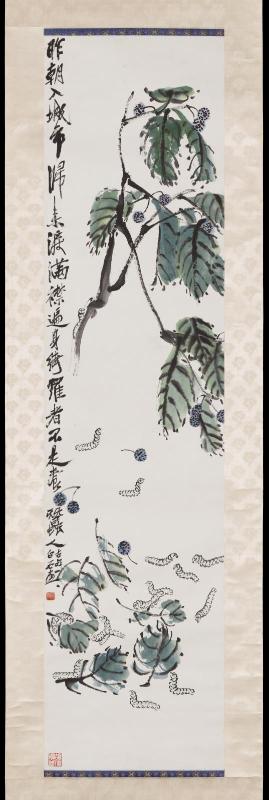 昨朝入城市歸來淚滿襟遍身綺羅者不是養蠶人白石畫